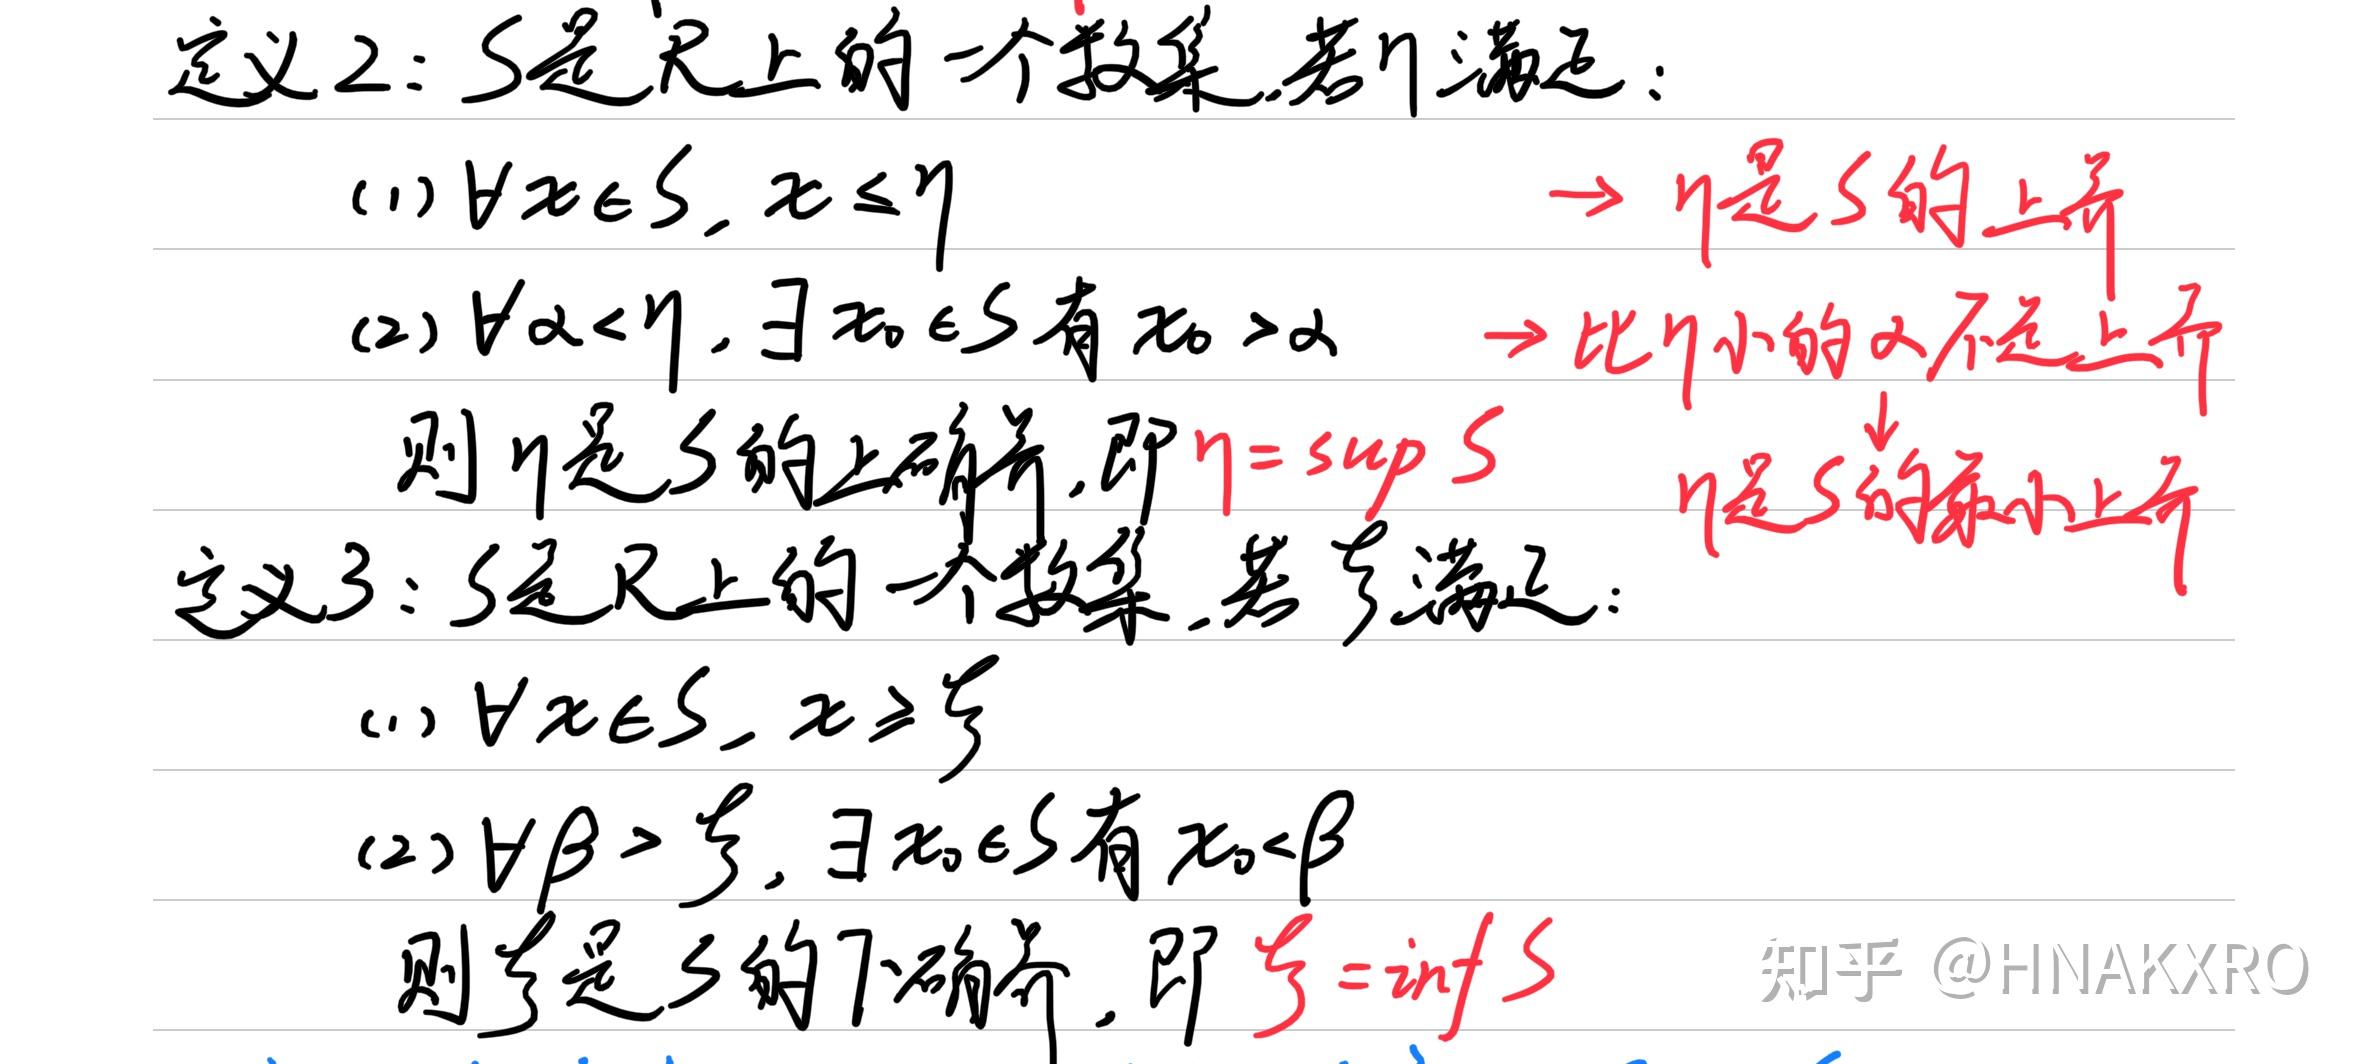 定义2: S是R上的一个数集,若η满足:
(1) ∀x∈S, x≤η → η是S的上界
(2) ∀α<η, ∃x₀∈S有x₀>α → 比η小的α不是上界
↓
则η是S的上确界,即η=sup S η是S的最小上界
定义3: S是R上的一个数集,若ξ满足:
(1) ∀x∈S, x≥ξ
(2) ∀β>ξ, ∃x₀∈S有x₀<β
则ξ是S的下确界,即ξ=inf S
知乎 @HNAKXRO